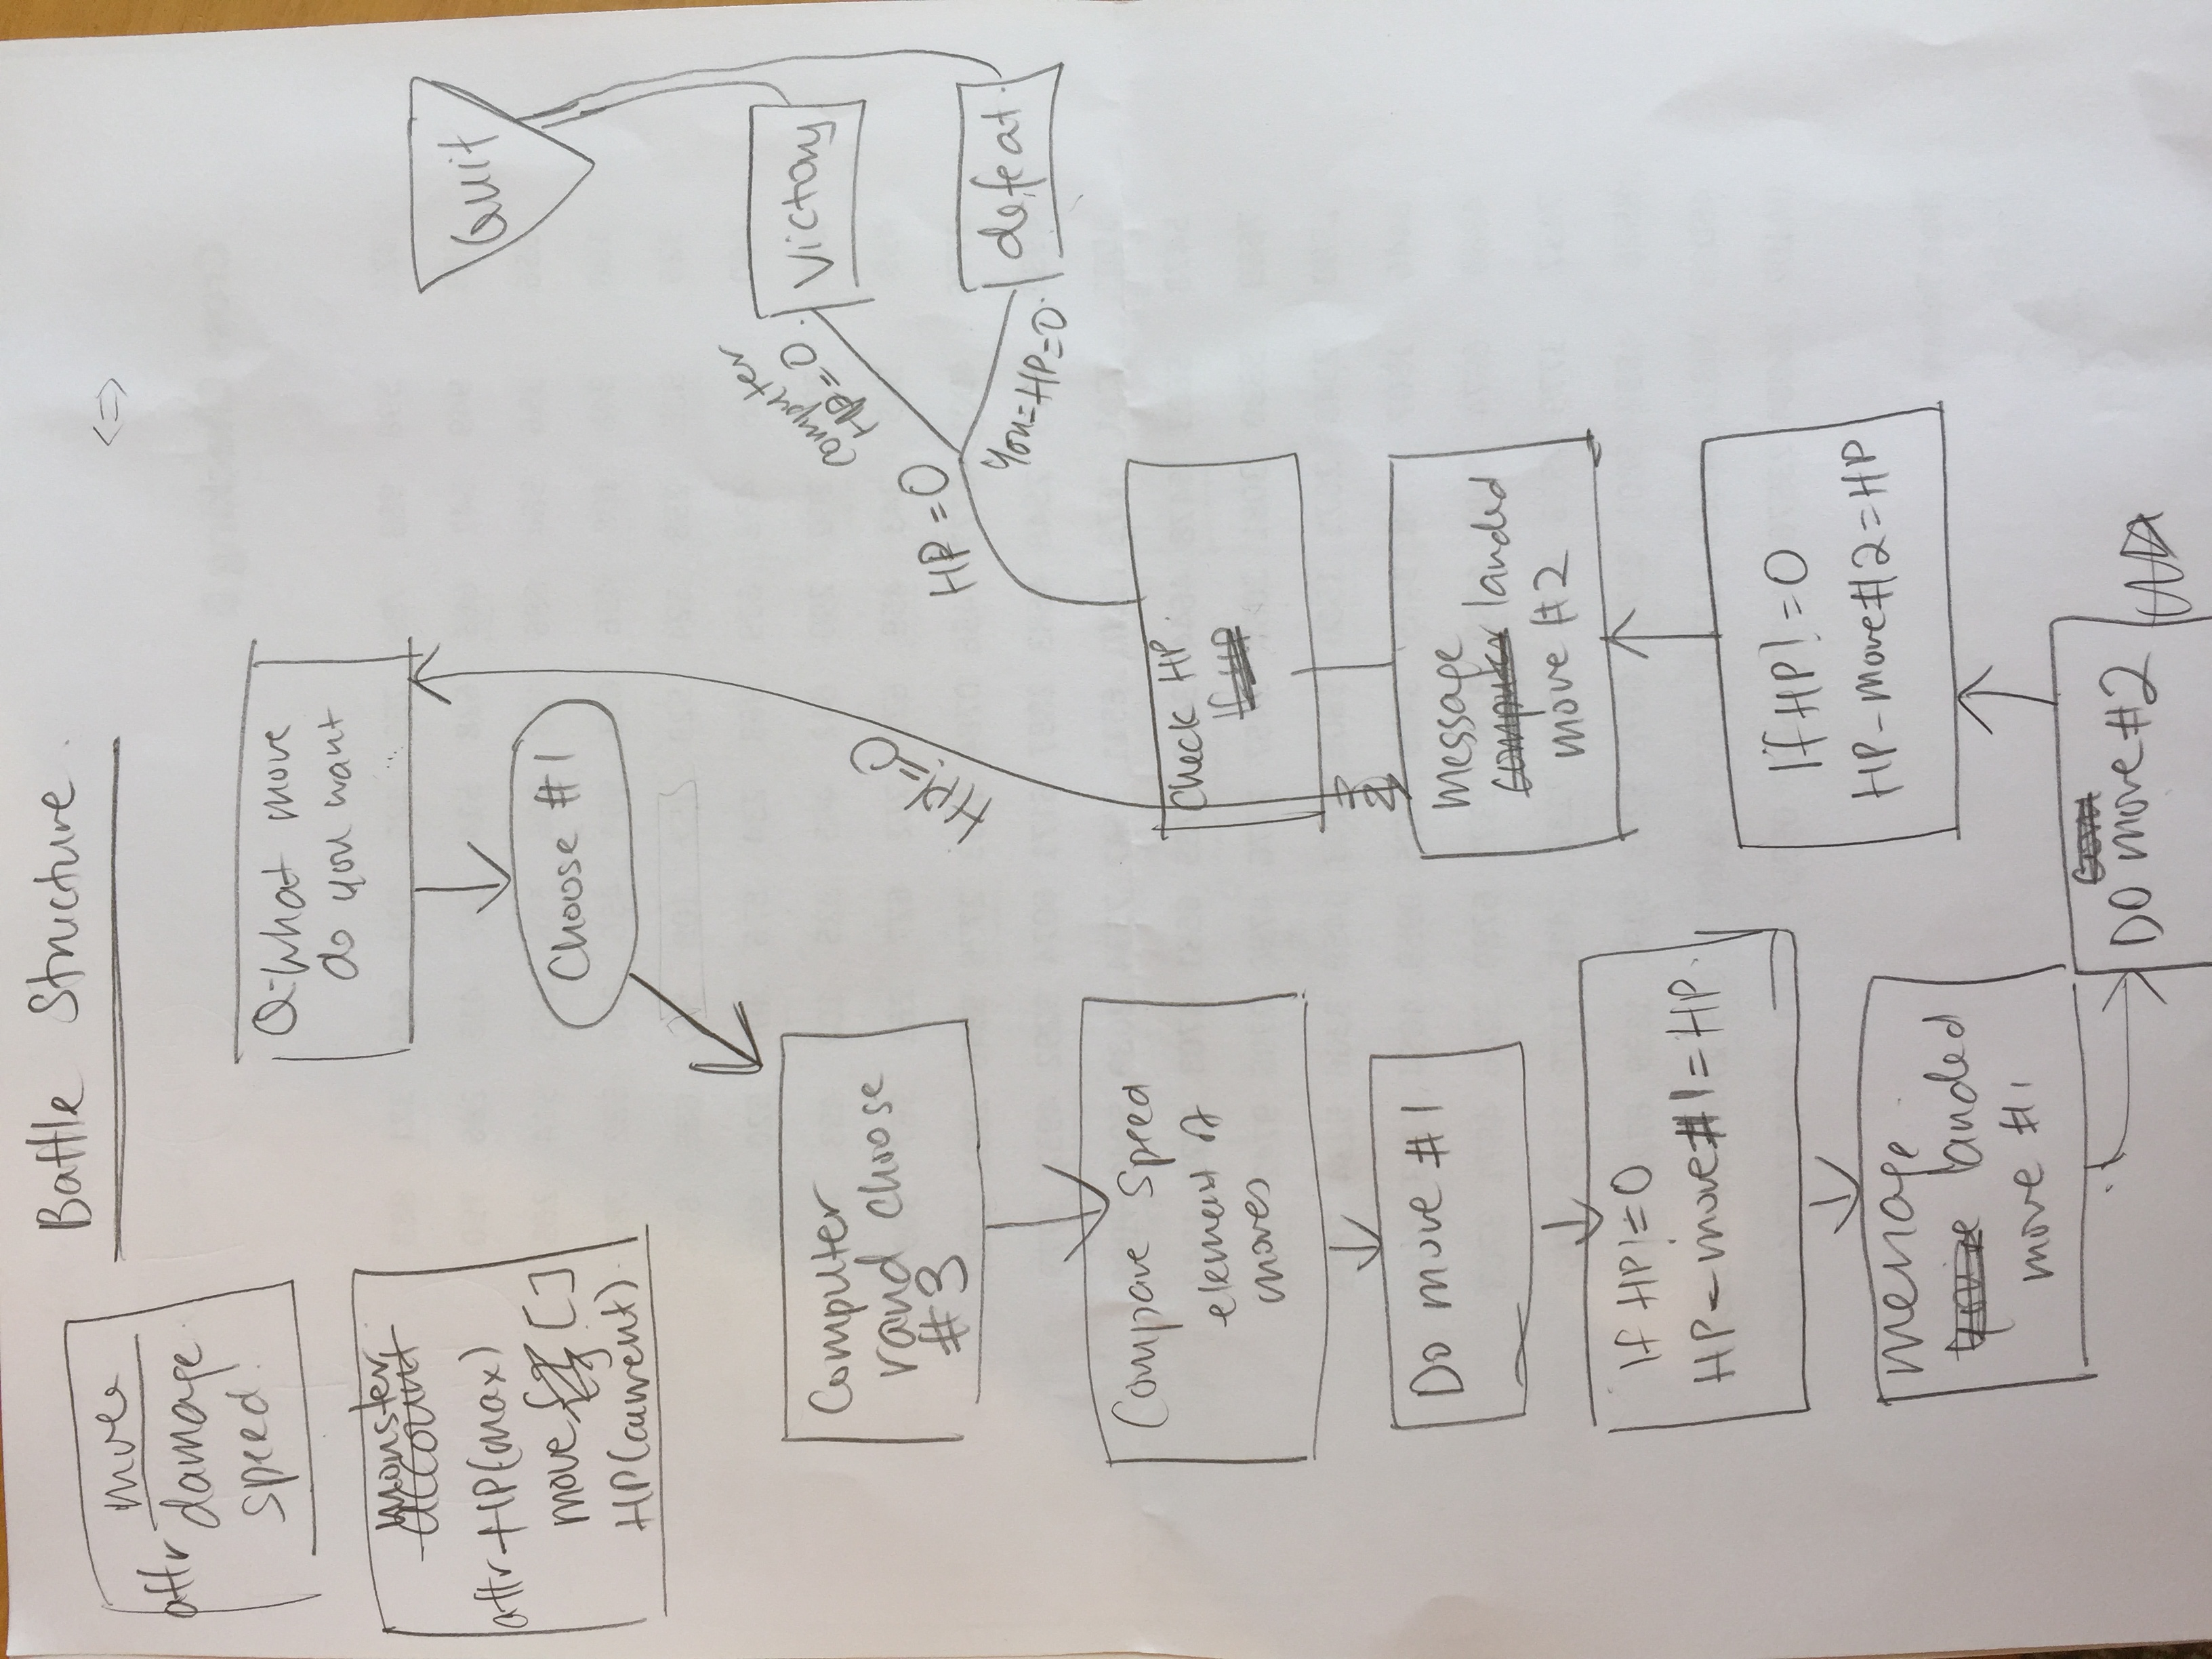 Battle Structure
<=>
move
attr damage
speed
monster
account
attr HP(max)
move []
HP(current)
Q-What move
do you want
Choose #1
Computer
rand choose
#3
Compare Speed
element of
moves
Do move #1
If HP!=0
HP-move#1=HP
message
landed
move #1
DO move #2
If HP!=0
HP-move#2=HP
message
computer landed
move #2
Check HP
If HP
HP!=0
HP=0
computer
HP=0
Victory
You=HP=0
defeat
Quit